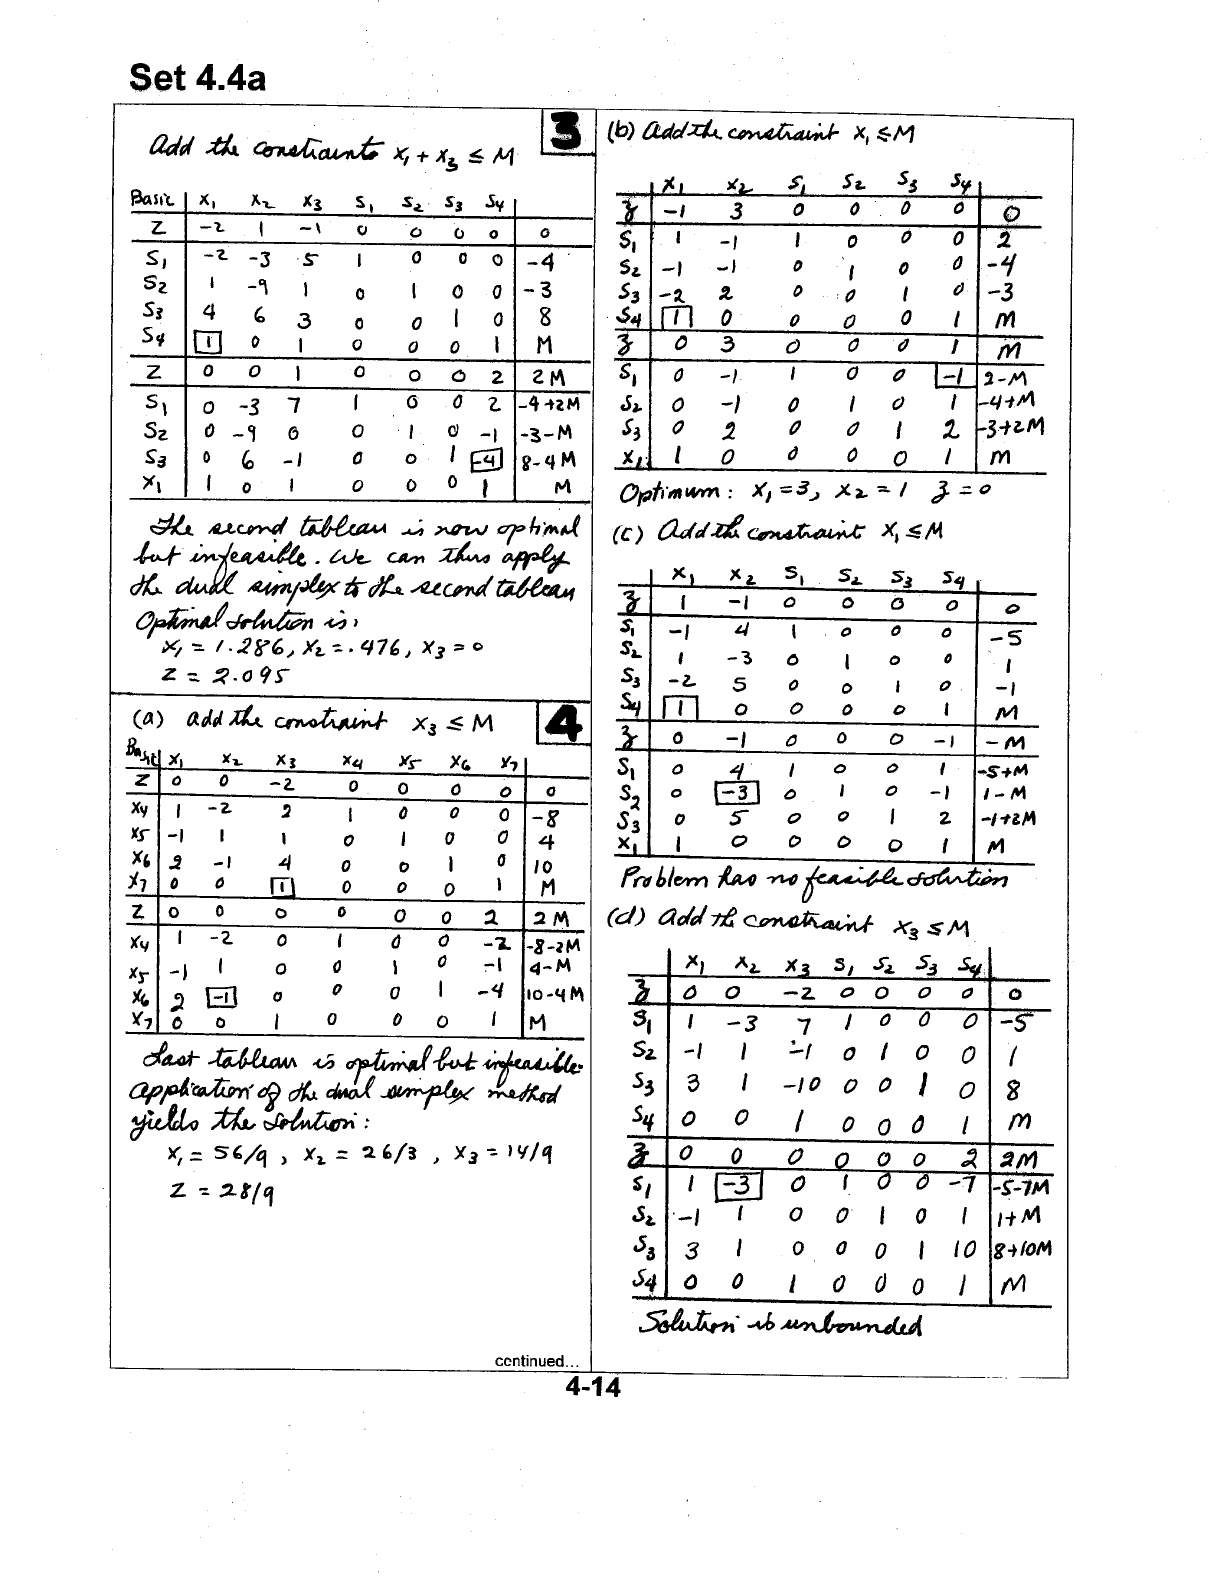 Set 4.4a
3
Add the constraints x₁ + x₃ ≤ M
Basic x₁ x₂ x₃ S₁ S₂ S₃ S₄
Z -2 1 -1 0 0 0 0 0
S₁ -2 -3 5 1 0 0 0 -4
S₂ 1 -9 1 0 1 0 0 -3
S₃ 4 6 3 0 0 1 0 8
S₄ 1 0 1 0 0 0 1 M
Z 0 0 1 0 0 0 2 2M
S₁ 0 -3 7 1 0 0 2 -4+2M
S₂ 0 -9 0 0 1 0 -1 -3-M
S₃ 0 6 -1 0 0 1 -4 8-4M
x₁ 1 0 1 0 0 0 1 M
The second tableau is now optimal
but infeasible. We can thus apply
the dual simplex to the second tableau
Optimal solution is,
x₁ = 1.286, x₂ = .476, x₃ = 0
Z = 2.095
4
(a) add the constraint x₃ ≤ M
Basic x₁ x₂ x₃ x₄ x₅ x₆ x₇
Z 0 0 -2 0 0 0 0 0
x₄ 1 -2 2 1 0 0 0 -8
x₅ -1 1 1 0 1 0 0 4
x₆ 2 -1 4 0 0 1 0 10
x₇ 0 0 1 0 0 0 1 M
Z 0 0 0 0 0 0 2 2M
x₄ 1 -2 0 1 0 0 -2 -8-2M
x₅ -1 1 0 0 1 0 -1 4-M
x₆ 2 -1 0 0 0 1 -4 10-4M
x₇ 0 0 1 0 0 0 1 M
Last tableau is optimal but infeasible.
Application of the dual simplex method
yields the solution:
x₁ = 56/9, x₂ = 26/3, x₃ = 14/9
Z = 28/9
continued...
(b) Add the constraint x₁ ≤ M
x₁ x₂ S₁ S₂ S₃ S₄
z -1 3 0 0 0 0 0
S₁ 1 -1 1 0 0 0 2
S₂ -1 -1 0 1 0 0 -4
S₃ -2 2 0 0 1 0 -3
S₄ 1 0 0 0 0 1 M
z 0 3 0 0 0 1 M
S₁ 0 -1 1 0 0 -1 2-M
S₂ 0 -1 0 1 0 1 -4+M
S₃ 0 2 0 0 1 2 -3+2M
x₁ 1 0 0 0 0 1 M
Optimum: x₁ = 3, x₂ = 1 z = 0
(c) Add the constraint x₁ ≤ M
x₁ x₂ S₁ S₂ S₃ S₄
z 1 -1 0 0 0 0 0
S₁ -1 4 1 0 0 0 -5
S₂ 1 -3 0 1 0 0 1
S₃ -2 5 0 0 1 0 -1
S₄ 1 0 0 0 0 1 M
z 0 -1 0 0 0 -1 -M
S₁ 0 4 1 0 0 1 -5+M
S₂ 0 -3 0 1 0 -1 1-M
S₃ 0 5 0 0 1 2 -1+2M
x₁ 1 0 0 0 0 1 M
Problem has no feasible solution
(d) add the constraint x₃ ≤ M
x₁ x₂ x₃ S₁ S₂ S₃ S₄
z 0 0 -2 0 0 0 0 0
S₁ 1 -3 7 1 0 0 0 -5
S₂ -1 1 -1 0 1 0 0 1
S₃ 3 1 -10 0 0 1 0 8
S₄ 0 0 1 0 0 0 1 M
z 0 0 0 0 0 0 2 2M
S₁ 1 -3 0 1 0 0 -7 -5-7M
S₂ -1 1 0 0 1 0 1 1+M
S₃ 3 1 0 0 0 1 10 8+10M
S₄ 0 0 1 0 0 0 1 M
Solution is unbounded
4-14